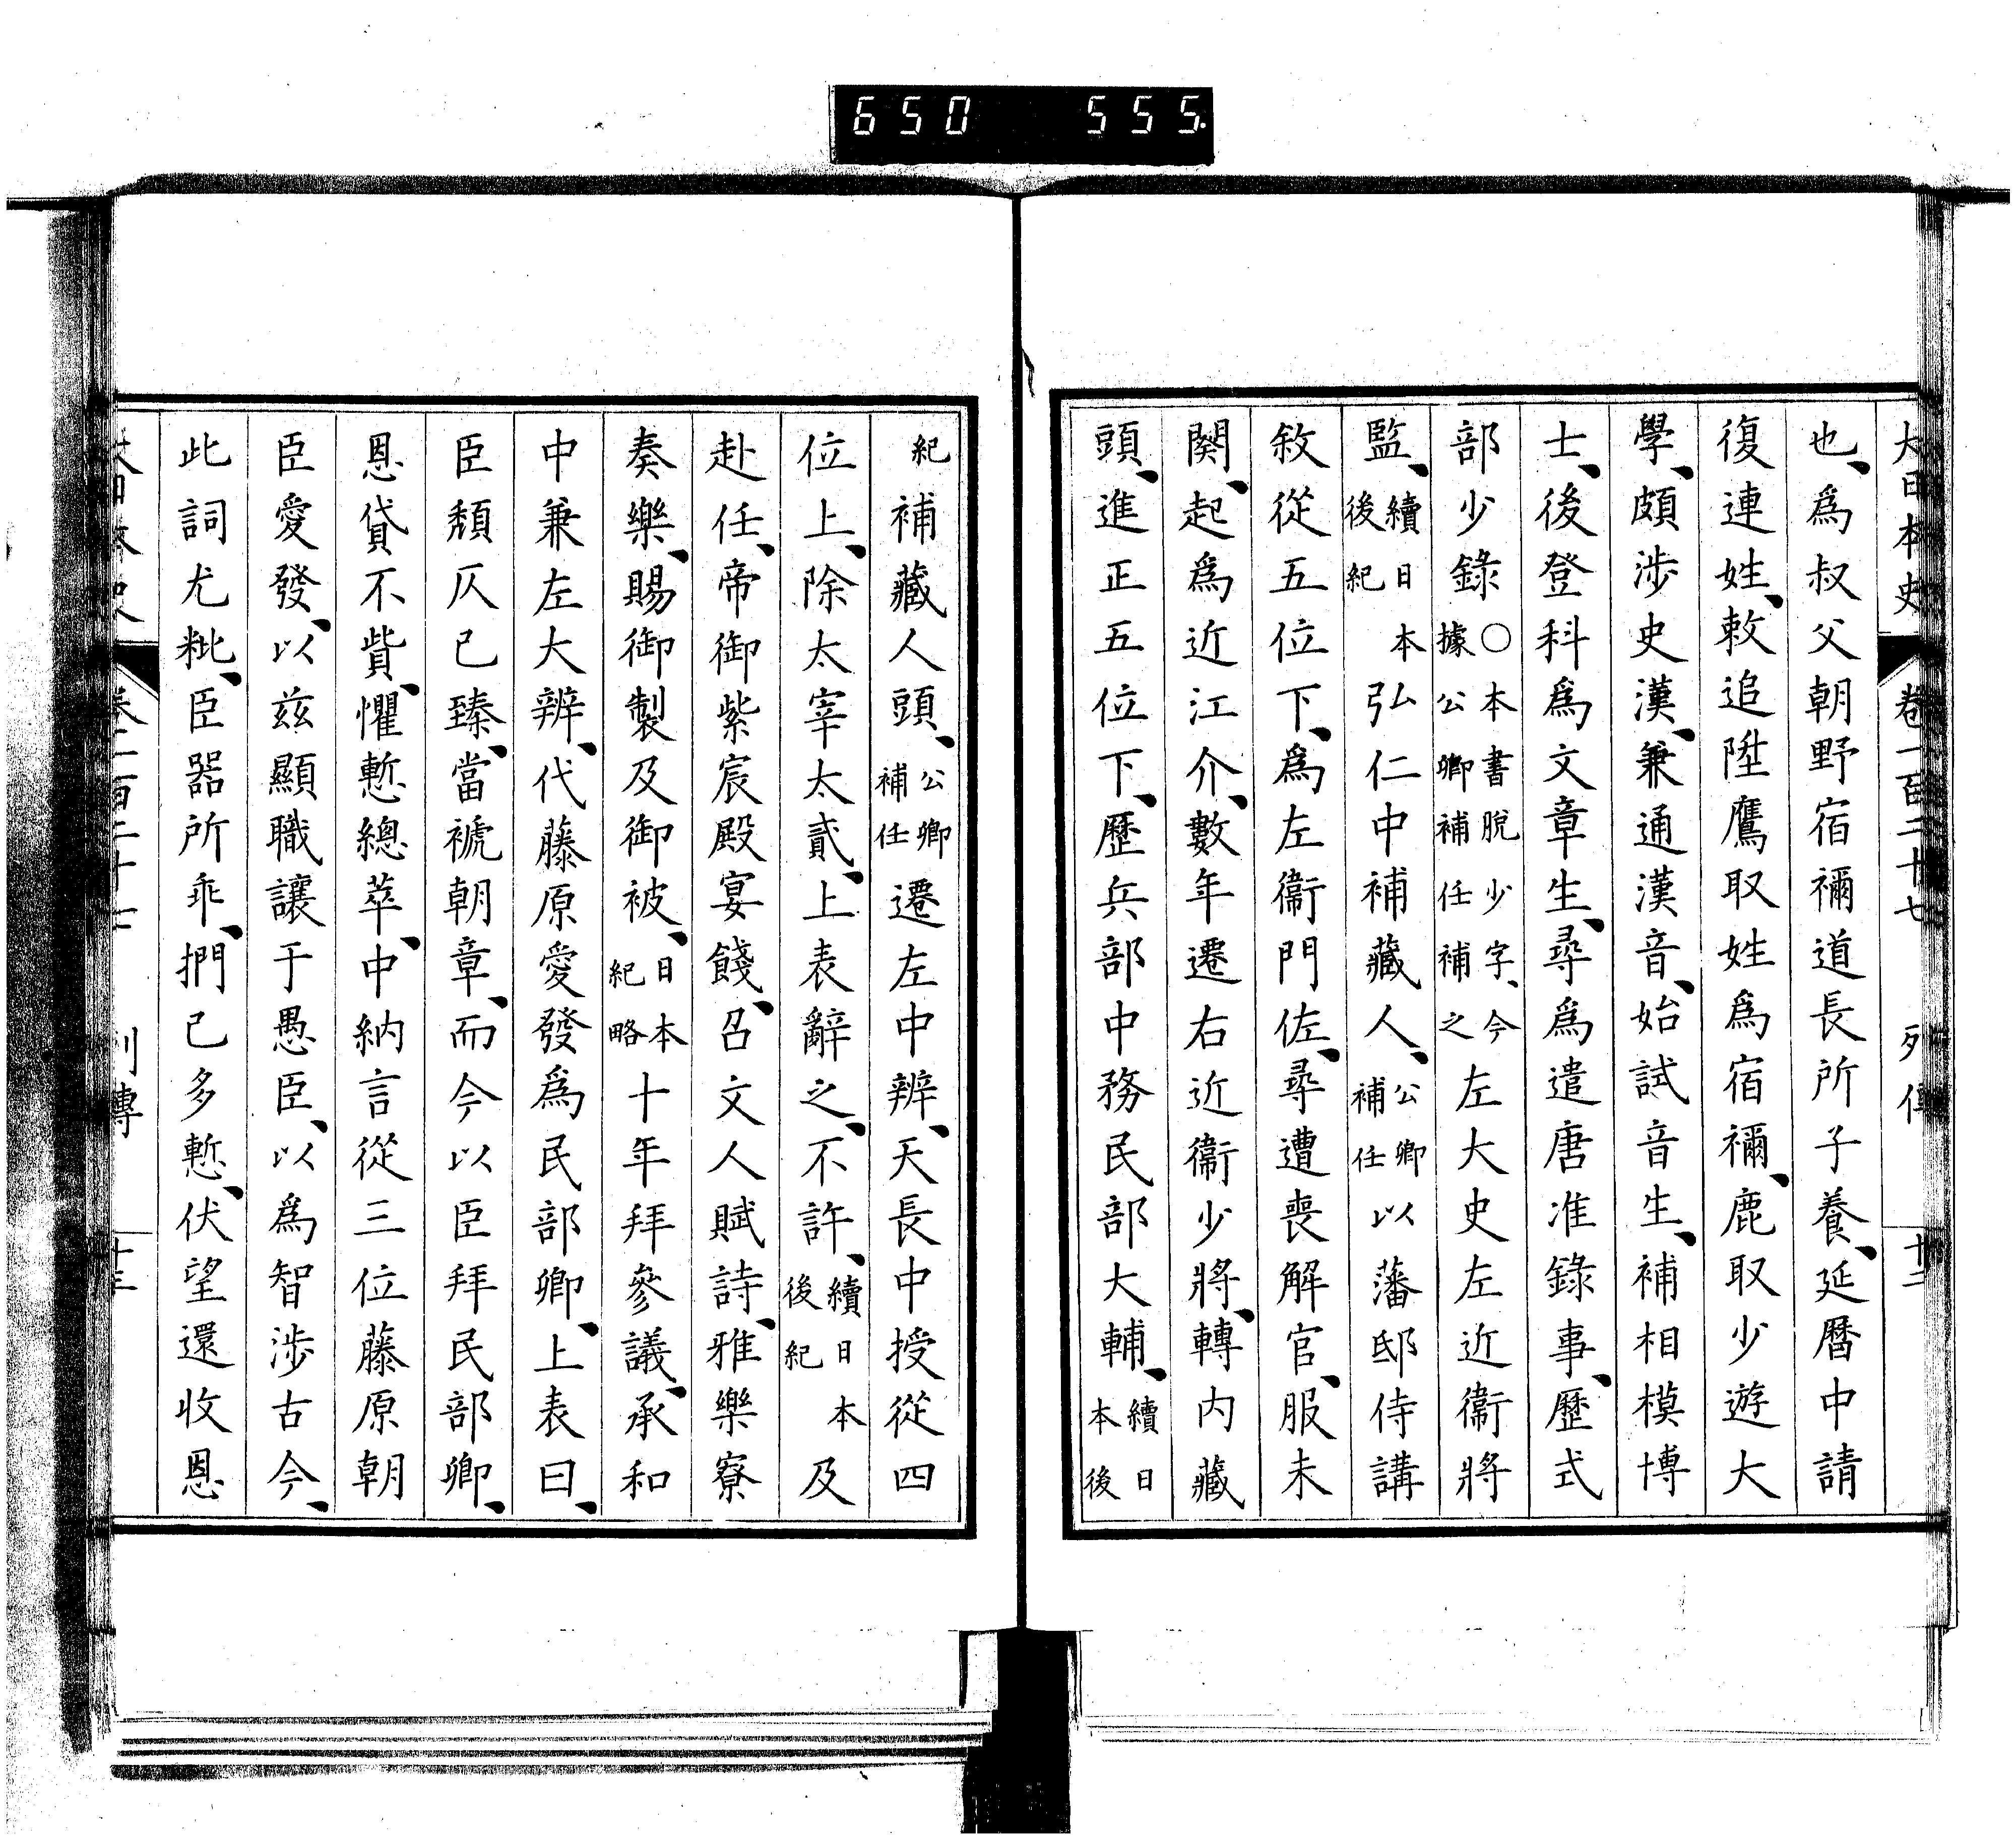 650 555.
大日本史 卷一百二十七 列傳 十二
也、爲叔父朝野宿禰道長所子養、延曆中請
復連姓、敕追陞鷹取姓爲宿禰、鹿取少遊大
學、頗涉史漢、兼通漢音、始試音生、補相模博
士、後登科爲文章生、尋爲遣唐准錄事、歷式
部少錄○本書脫少字、今據公卿補任補之左大史左近衞將
監、續日本後紀弘仁中補藏人、公卿補任以藩邸侍講
敘從五位下、爲左衞門佐、尋遭喪解官、服未
闋、起爲近江介、數年遷右近衞少將、轉內藏
頭、進正五位下、歷兵部中務民部大輔、續日本後
紀補藏人頭、公卿補任遷左中辨、天長中授從四
位上、除太宰太貳、上表辭之、不許、續日本後紀及
赴任、帝御紫宸殿宴餞、召文人賦詩、雅樂寮
奏樂、賜御製及御被、日本紀略十年拜參議、承和
中兼左大辨、代藤原愛發爲民部卿、上表曰、
臣頽仄已臻、當褫朝章、而今以臣拜民部卿、
恩貸不貲、懼慙總萃、中納言從三位藤原朝
臣愛發、以茲顯職讓于愚臣、以爲智涉古今、
此詞尤粃、臣器所乖、捫己多慙、伏望還收恩
大日本史 卷一百二十七 列傳 十三